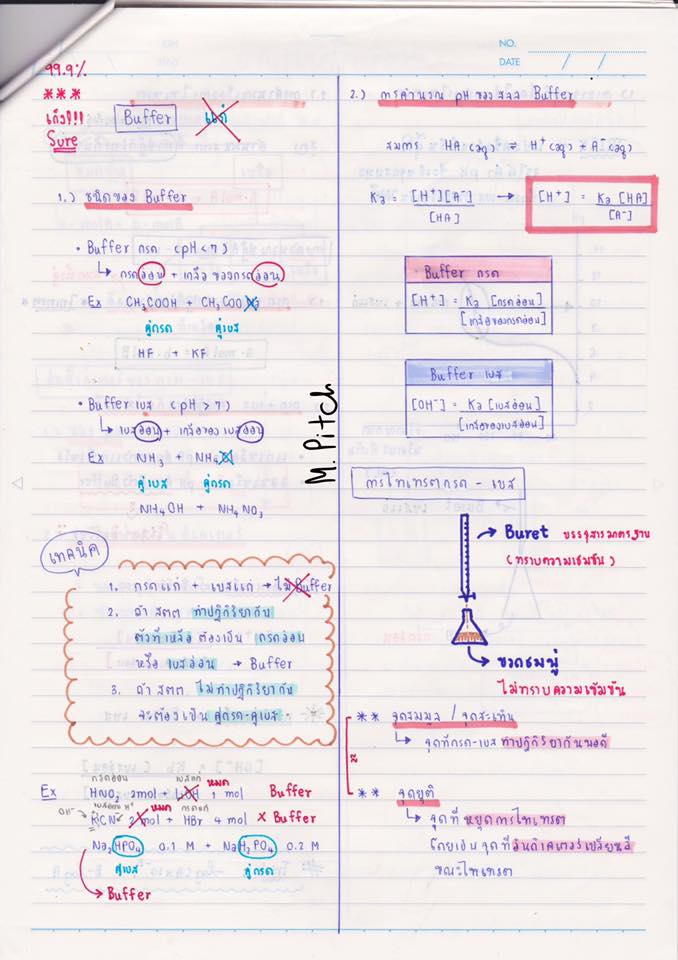 NO.
DATE / /
99.9%
***
เก็ง!!!
Sure
Buffer แก่
1.) ชนิดของ Buffer
• Buffer กรด (pH < 7)
กรดอ่อน + เกลือของกรดอ่อน
Ex CH₃COOH + CH₃COO
คู่กรด คู่เบส
HF + KF
• Buffer เบส (pH > 7)
เบสอ่อน + เกลือของเบสอ่อน
Ex NH₃ + NH₄
คู่เบส คู่กรด
NH₄OH + NH₄NO₃
เทคนิค
1. กรดแก่ + เบสแก่ → ไม่ Buffer
2. ถ้า สตต ทำปฏิกิริยากัน
ตัวที่เหลือ ต้องเป็น กรดอ่อน
หรือ เบสอ่อน → Buffer
3. ถ้า สตต ไม่ทำปฏิกิริยากัน
จะต้องเป็น คู่กรด-คู่เบส
กรดอ่อน เบสแก่ หมด
Ex HNO₂ 2mol + LiOH 1 mol Buffer
OH⁻ เบสอ่อน H⁺ หมด กรดแก่
KCN 2mol + HBr 4 mol × Buffer
Na₂HPO₄ 0.1 M + NaH₂PO₄ 0.2 M
คู่เบส คู่กรด
Buffer
M. Pitch
2.) การคำนวณ pH ของ สลล Buffer
สมการ HA (aq) ⇌ H⁺(aq) + A⁻(aq)
Ka = [H⁺][A⁻] / [HA] → [H⁺] = Ka [HA] / [A⁻]
Buffer กรด
[H⁺] = Ka [กรดอ่อน]
[เกลือของกรดอ่อน]
Buffer เบส
[OH⁻] = Ka [เบสอ่อน]
[เกลือของเบสอ่อน]
การไทเทรตกรด - เบส
Buret บรรจุสารมาตรฐาน
(ทราบความเข้มข้น)
ขวดชมพู่
ไม่ทราบความเข้มข้น
** จุดสมมูล / จุดสะเทิน
จุดที่กรด-เบส ทำปฏิกิริยากันพอดี
** จุดยุติ
จุดที่ หยุดการไทเทรต
โดยเป็น จุดที่อินดิเคเตอร์เปลี่ยนสี
ขณะไทเทรต